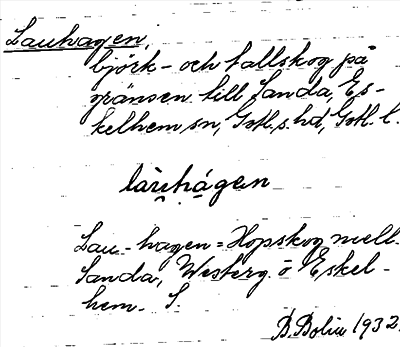 Lauhagen,
björk- och tallskog på
gränsen till Sanda, Es-
kelhem sn, Gotl. s. hd, Gotl. l.
làu̯há̤gen
Lau-hagen = Hopskog mell.
Sanda, Westerg. o Eskel-
hem. S.
B. Bolin 1932.